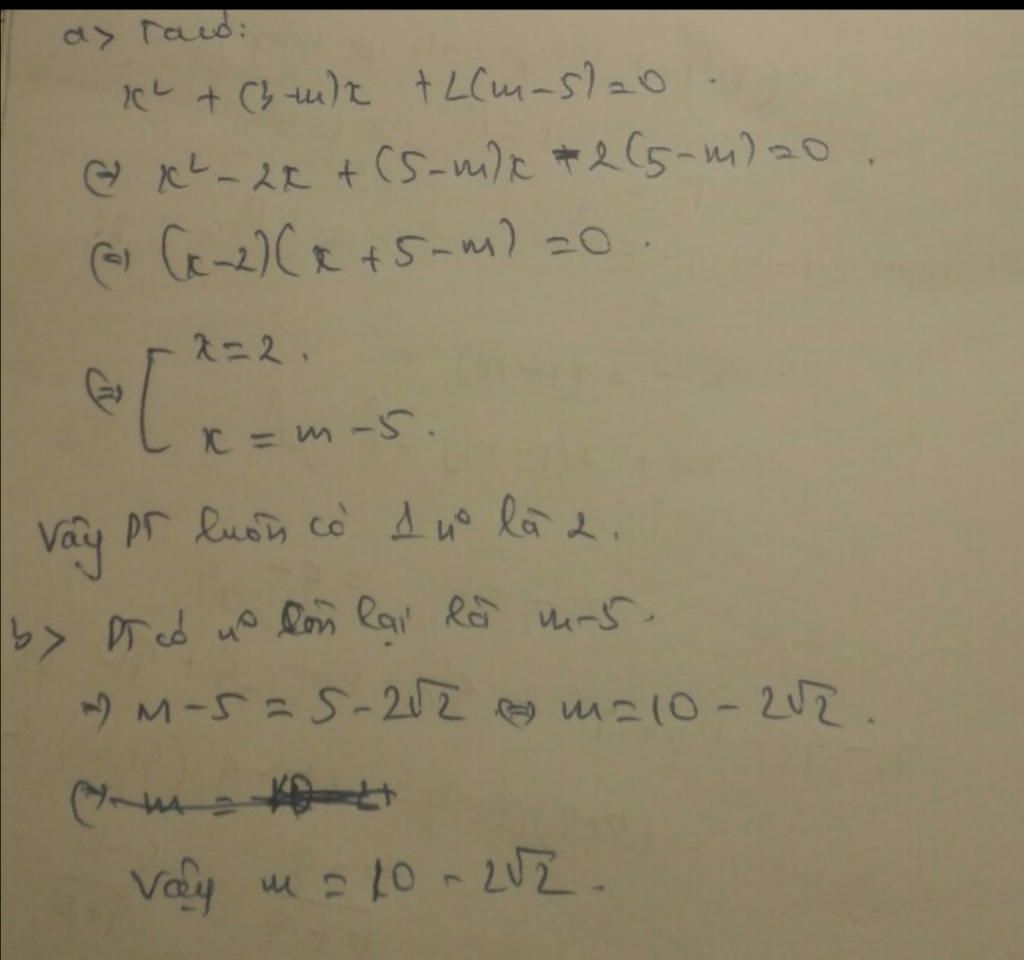 a> Ta có:
x² + (3-m)x + 2(m-5)=0.
⇔ x² - 2x + (5-m)x - 2(5-m)=0.
⇔ (x-2)(x+5-m) =0.
⇔ [ x=2.
x = m-5.
Vậy PT luôn có 1 n⁰ là 2.
b> PT có n⁰ còn lại là m-5.
⇒ m-5 = 5-2√2 ⇔ m=10-2√2.
Vậy m = 10 - 2√2.